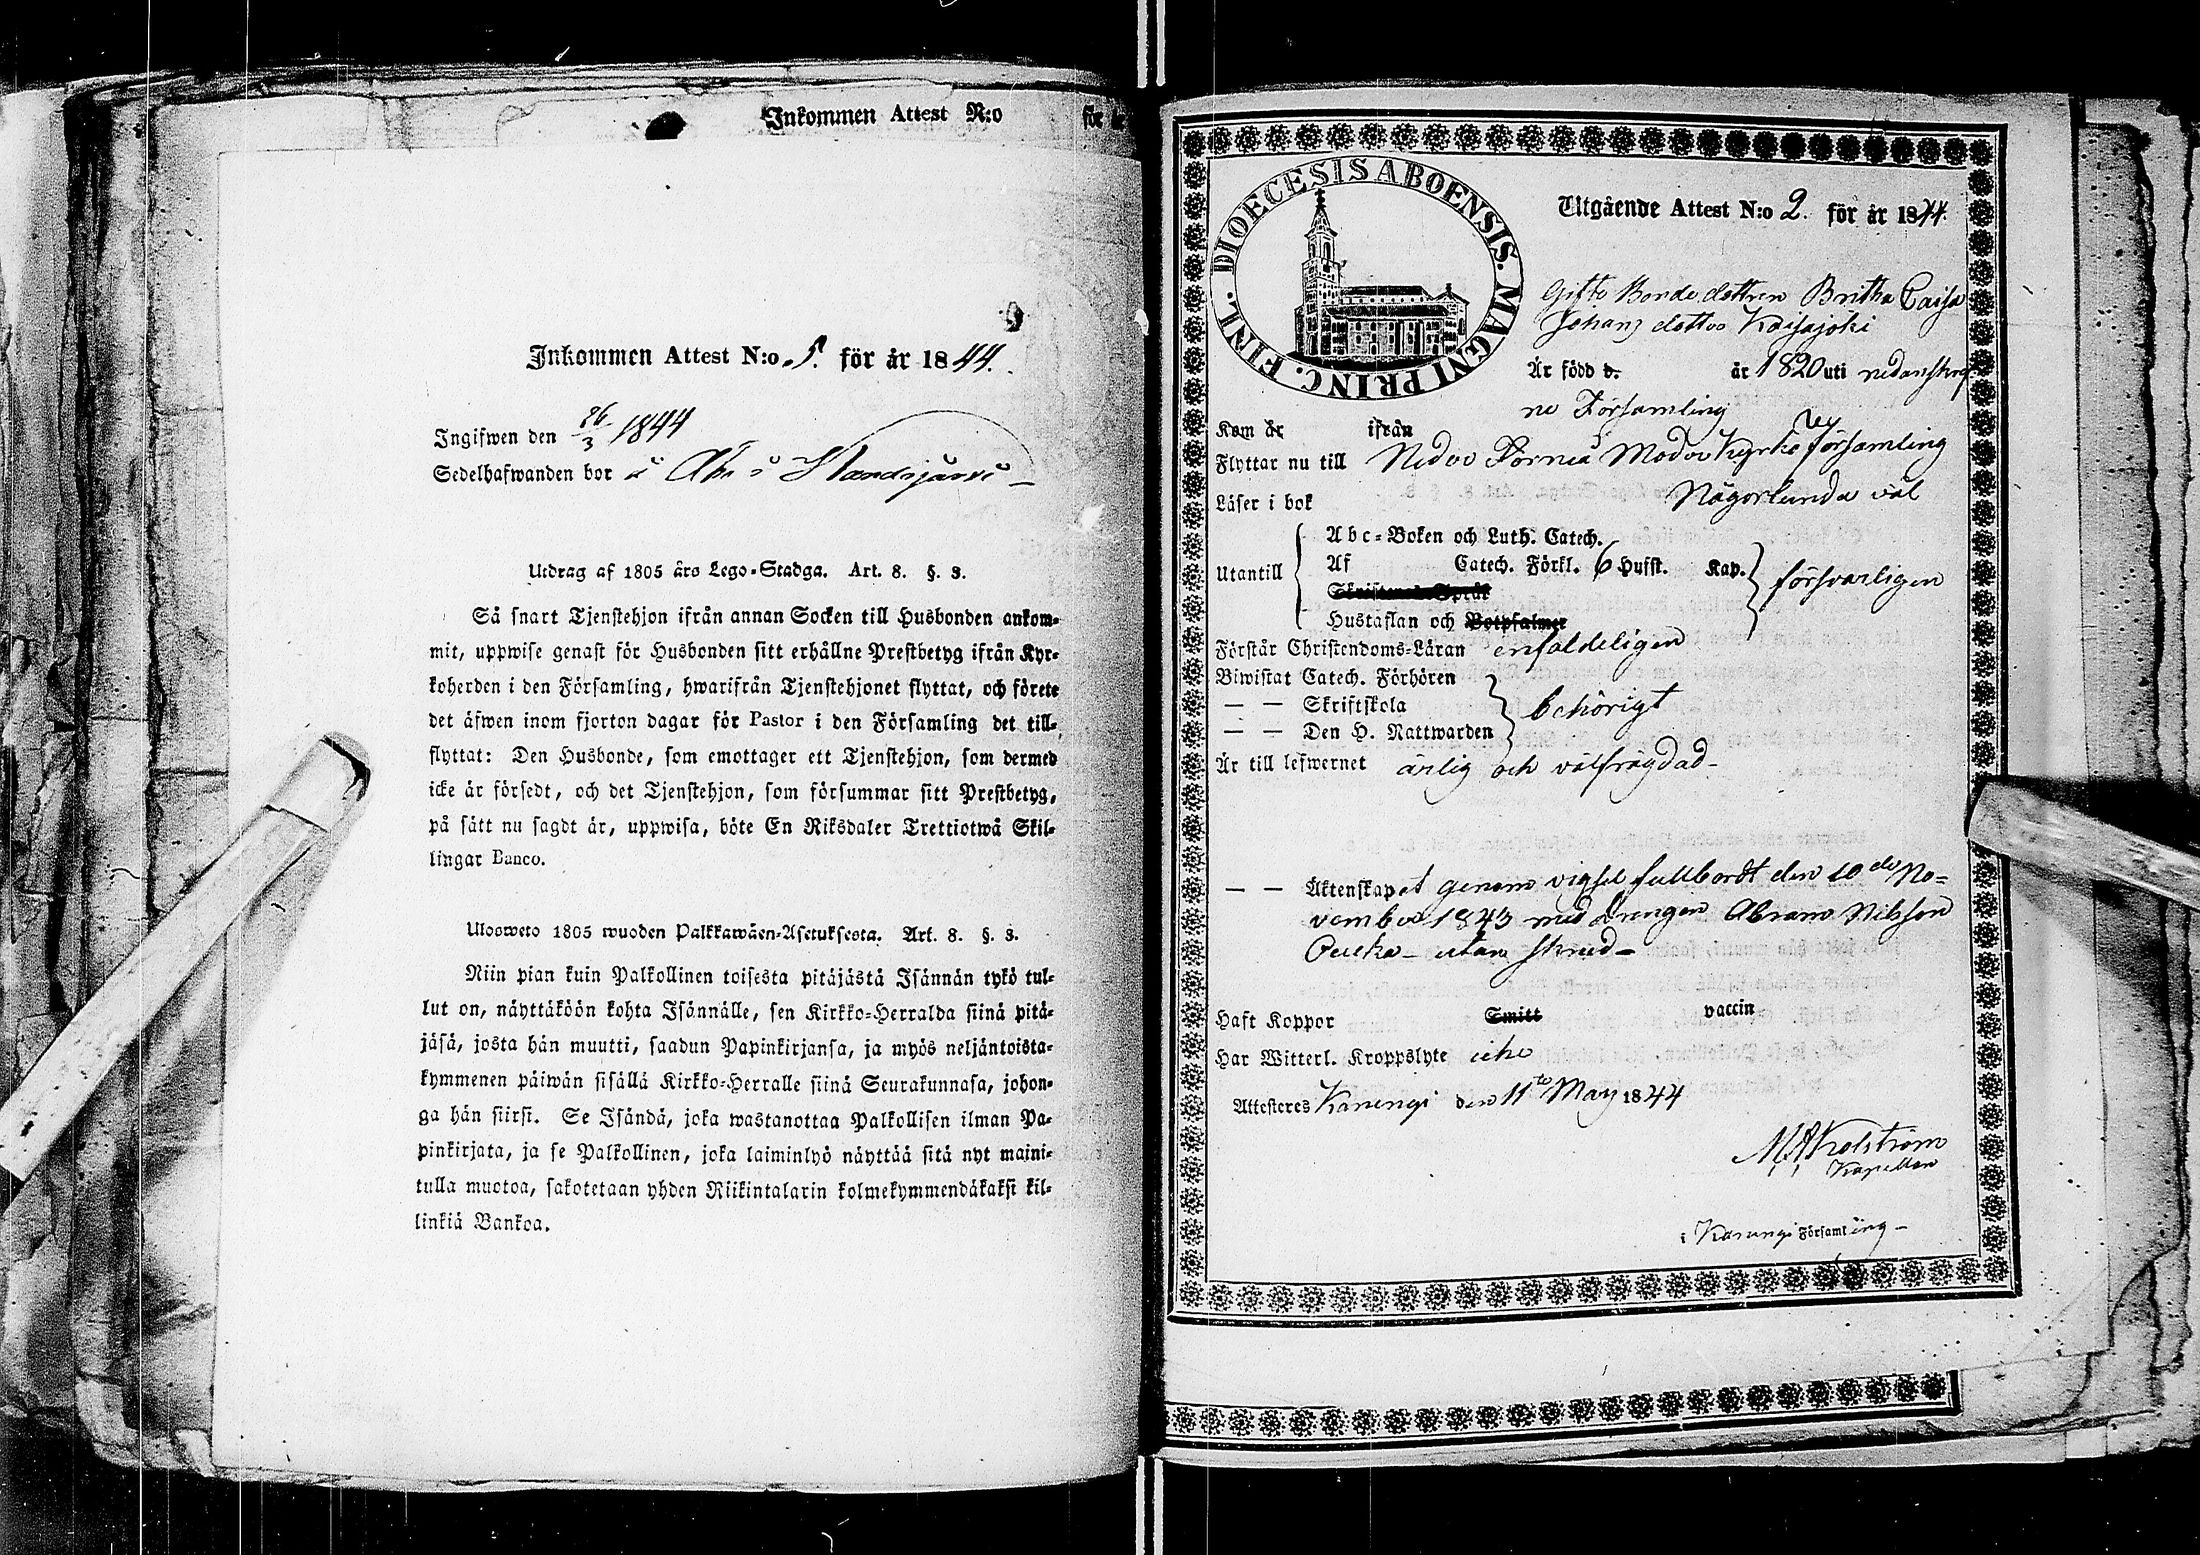 Inkommen Attest N:o för
Inkommen Attest N:o 5. för år 1844.
Ingifwen den 26/3 1844
Sedelhafwanden bor å
Utdrag af 1805 års Lego-Stadga. Art. 8. §. 3.
Så snart Tjenstehjon ifrån annan Socken till Husbonden ankom-
mit, uppwise genast för Husbonden sitt erhållne Prestbetyg ifrån Kyr-
koherden i den Församling, hwarifrån Tjenstehjonet flyttat, och förete
det äfwen inom fjorton dagar för Pastor i den Församling det till-
flyttat: Den Husbonde, som emottager ett Tjenstehjon, som dermed
icke är försedt, och det Tjenstehjon, som försummar sitt Prestbetyg,
på sätt nu sagdt är, uppwisa, böte En Riksdaler Trettiotwå Skil-
lingar Banco.
Ulosweto 1805 wuoden Palkkawäen-Asetuksesta. Art. 8. §. 3.
Niin pian kuin Palkollinen toisesta pitäjästä Isännän tykö tul-
lut on, näyttäköön kohta Isännälle, sen Kirkko-Herralda siinä pitä-
jäsä, josta hän muutti, saadun Papinkirjansa, ja myös neljäntoista-
kymmenen päiwän sisällä Kirkko-Herralle siinä Seurakunnasa, johon-
ga hän siirsi. Se Isändä, joka wastanottaa Palkollisen ilman Pa-
pinkirjata, ja se Palkollinen, joka laiminlyö näyttää sitä nyt maini-
tulla muotoa, sakotetaan yhden Riikintalarin kolmekymmendäkaksi kil-
linkiä Bankoa.
DIOECESIS ABOENSIS. MAGNI PRINC. FINL.
Utgående Attest N:o 2. för år 1844.
Gifta Bonde dottren Britha Caisa
Johans dotter Kaisajoki
Är född d. år 1820 uti nedanskref
ne Församling
Kom år ifrån
Flyttar nu till Neder Torneå Moder Kyrko församling
Läser i bok Någorlunda väl
Utantill
Abc-Boken och Luth. Catech.
Af Catech. Förkl. 6 Hufst. Kap. försvarligen
Skriftenes Språk
Hustaflan och Botpsalmer
Förstår Christendoms-Läran enfaldeligen
Biwistat Catech. Förhören
— — Skriftskola behörigt
— — Den H. Nattwarden
Är till lefwernet ärlig och välfrägdad-
— — Äktenskapet genom vigsel fullbordt den 10de No-
vember 1843 med drengen Abram Nilsson
utan skrud-
Haft Koppor Smitt vaccin
Har Witterl. Kroppslyte icke
Attesteres Karungi den 11te May 1844
Kapellan
i Karungi Församling-